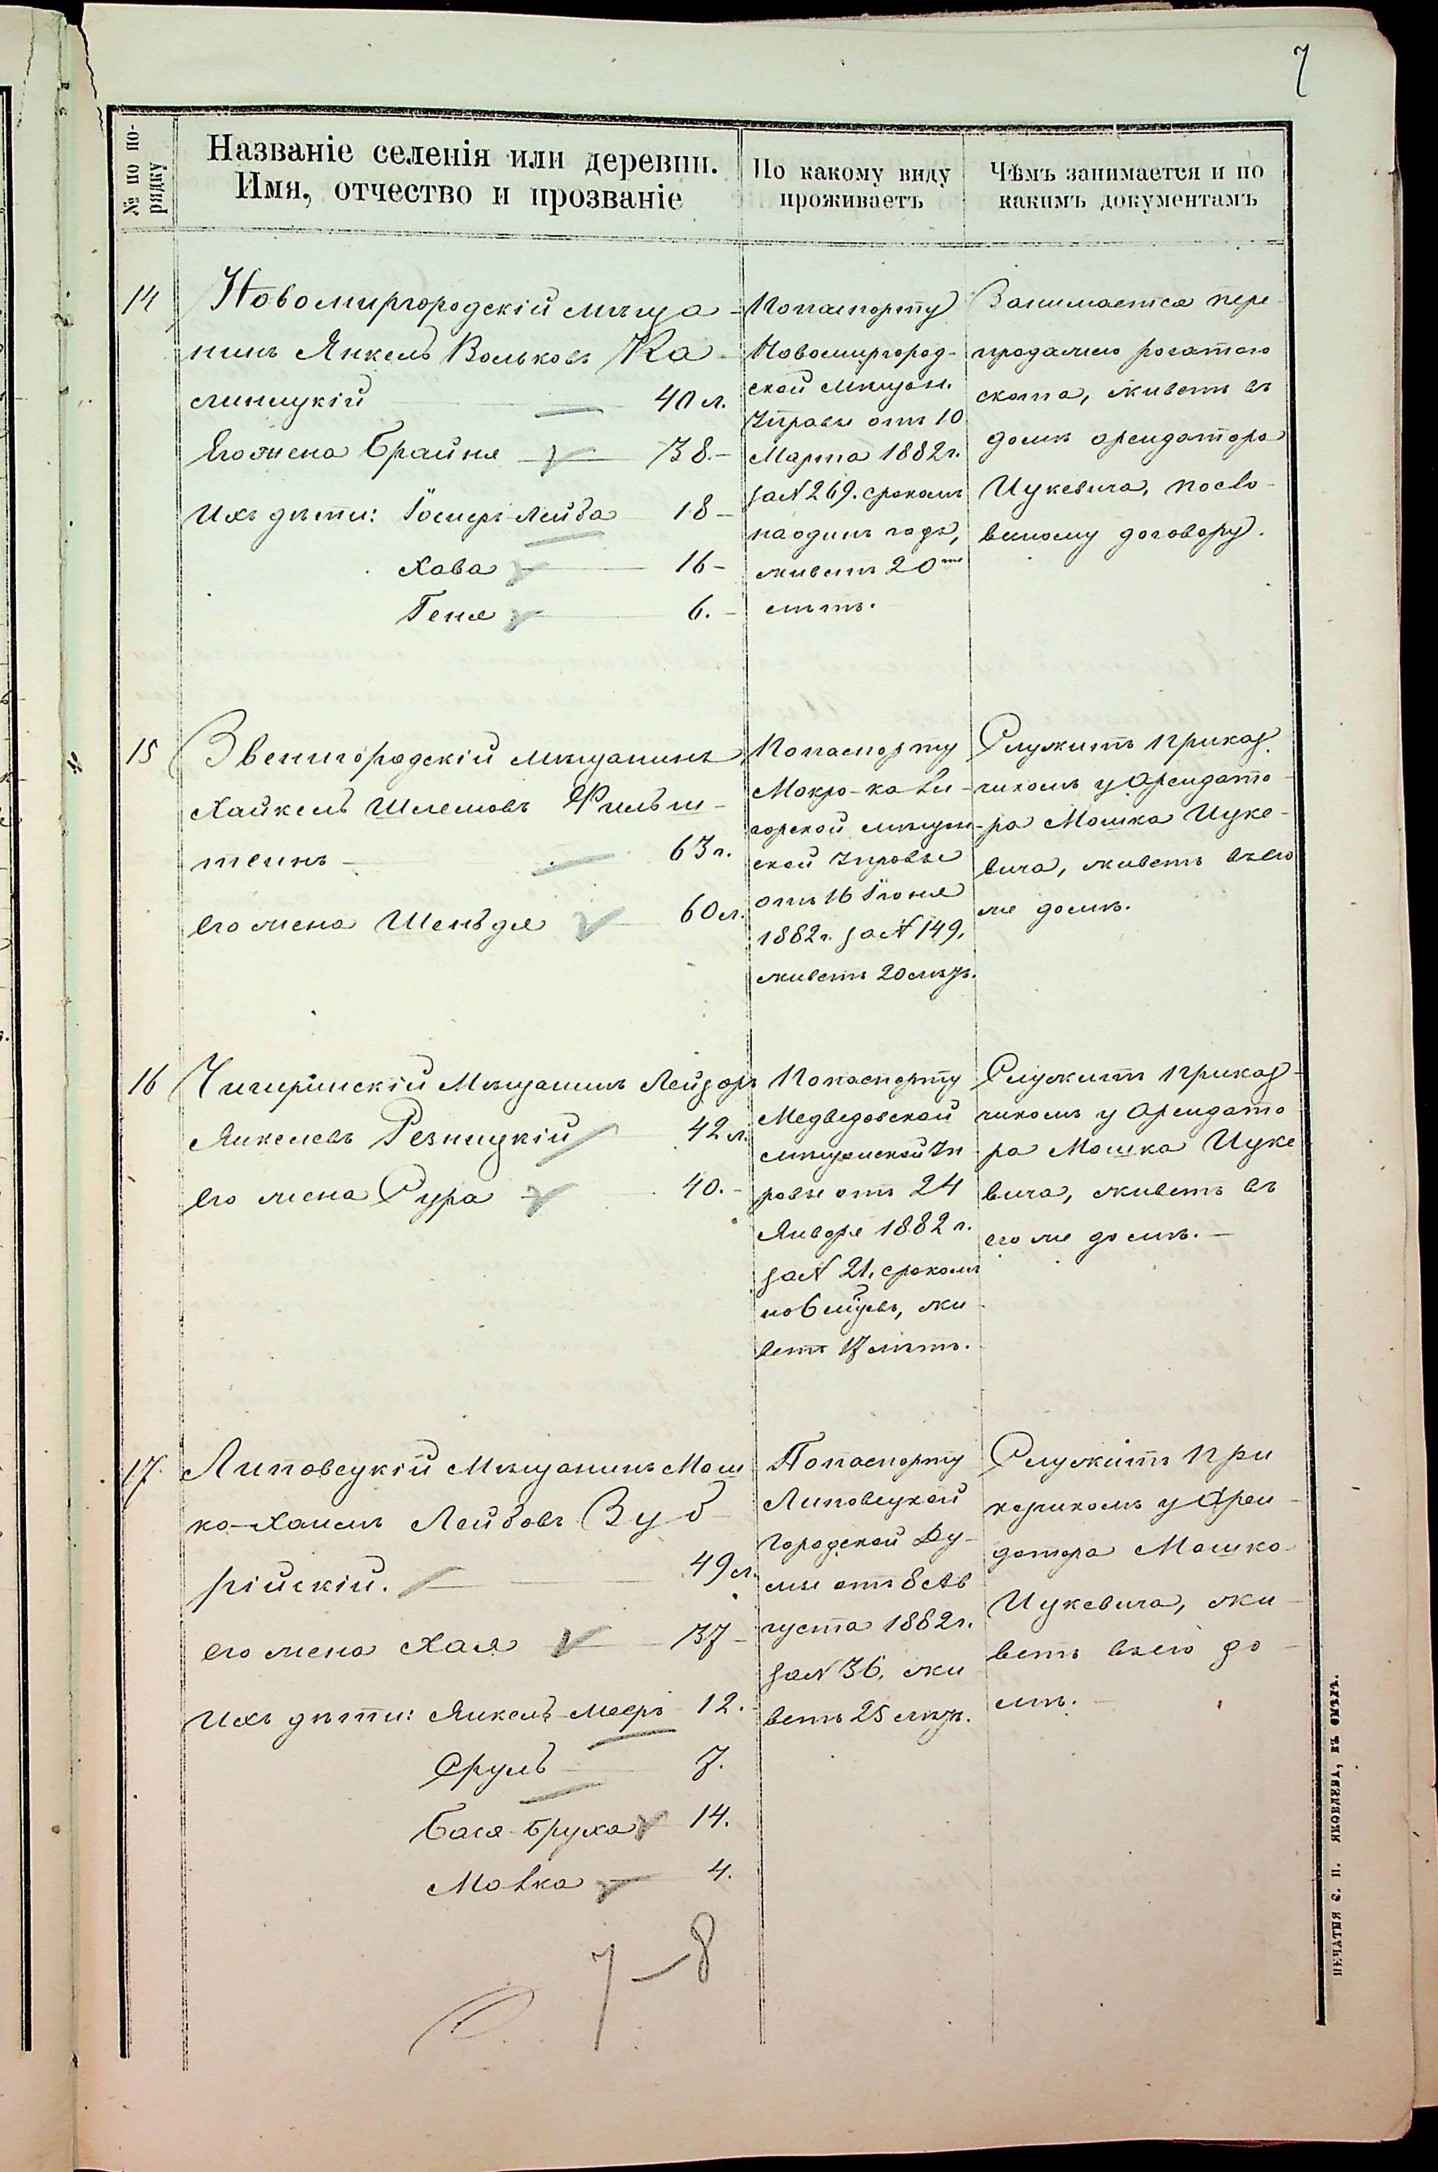 7
№ по по-
рядку
Названіе селенія или деревни.
Имя, отчество и прозваніе
По какому виду
проживаетъ
Чѣмъ занимается и по
какимъ документамъ
14
Новомиргородскій мѣща-
нинъ Янкель Вольковъ Ка-
линицкій — 40 л.
Его жена Брайня — 38.-
Ихъ дѣти: Іосиеръ-Лейба 18-
Хава — 16-
Геня — 6.-
По паспорту
Новомиргород-
ской мѣщан.
Управы отъ 10
Марта 1882 г.
за № 269. срокомъ
на одинъ годъ,
живетъ 20ть
лѣтъ.
Занимается пере-
продажею рогатаго
скота, живетъ въ
домѣ арендатора
Цукевича, посло-
весному договору.
15
Звенигородскій мѣщанинъ
Хайкель Шлемовъ Фильш-
теинъ — 63 г.
Его жена Шеньдля 60 л.
По паспорту
Мокро-кали-
горской мѣщан-
ской Управы
отъ 16 Іюня
1882 г. за № 149,
живетъ 20 лѣтъ.
Служитъ приказ-
чикомъ у Арендато-
ра Мошка Цуке-
вича, живетъ въ его
же домѣ.
16
Чигиринскій Мѣщанинъ Лейзоръ
Янкелевъ Резницкій 42 л.
Его жена Сура 40.-
По паспорту
Медведовской
мѣщанской Уп-
равы отъ 24
Января 1882 г.
за № 21, срокомъ
на 6 мѣсев, жи-
ветъ 17 лѣтъ.
Служитъ приказ-
чикомъ у Арендато-
ра Мошка Цуке-
вича, живетъ въ
его же домѣ.—
17.
Липовецкій Мѣщанинъ Мош-
ко-Хаимъ Лейбовъ Зуб-
рійскій. — 49 л.
Его жена Хая — 37-
Ихъ дѣти: Янкель-Мееръ 12.-
Сруль — 7.
Бася-Бруха 14.
Мовка — 4.
По паспорту
Липовецкой
Городской Ду-
мы отъ 8 Ав-
густа 1882 г.
за № 36, жи-
ветъ 25 лѣтъ.
Служитъ при-
кащикомъ у Арен-
датора Мошко
Цукевича, жи-
ветъ въ его до-
мѣ.—
7—8
ПЕЧАТНЯ С. П. ЯКОВЛЕВА, ВЪ СМѢЛѢ.